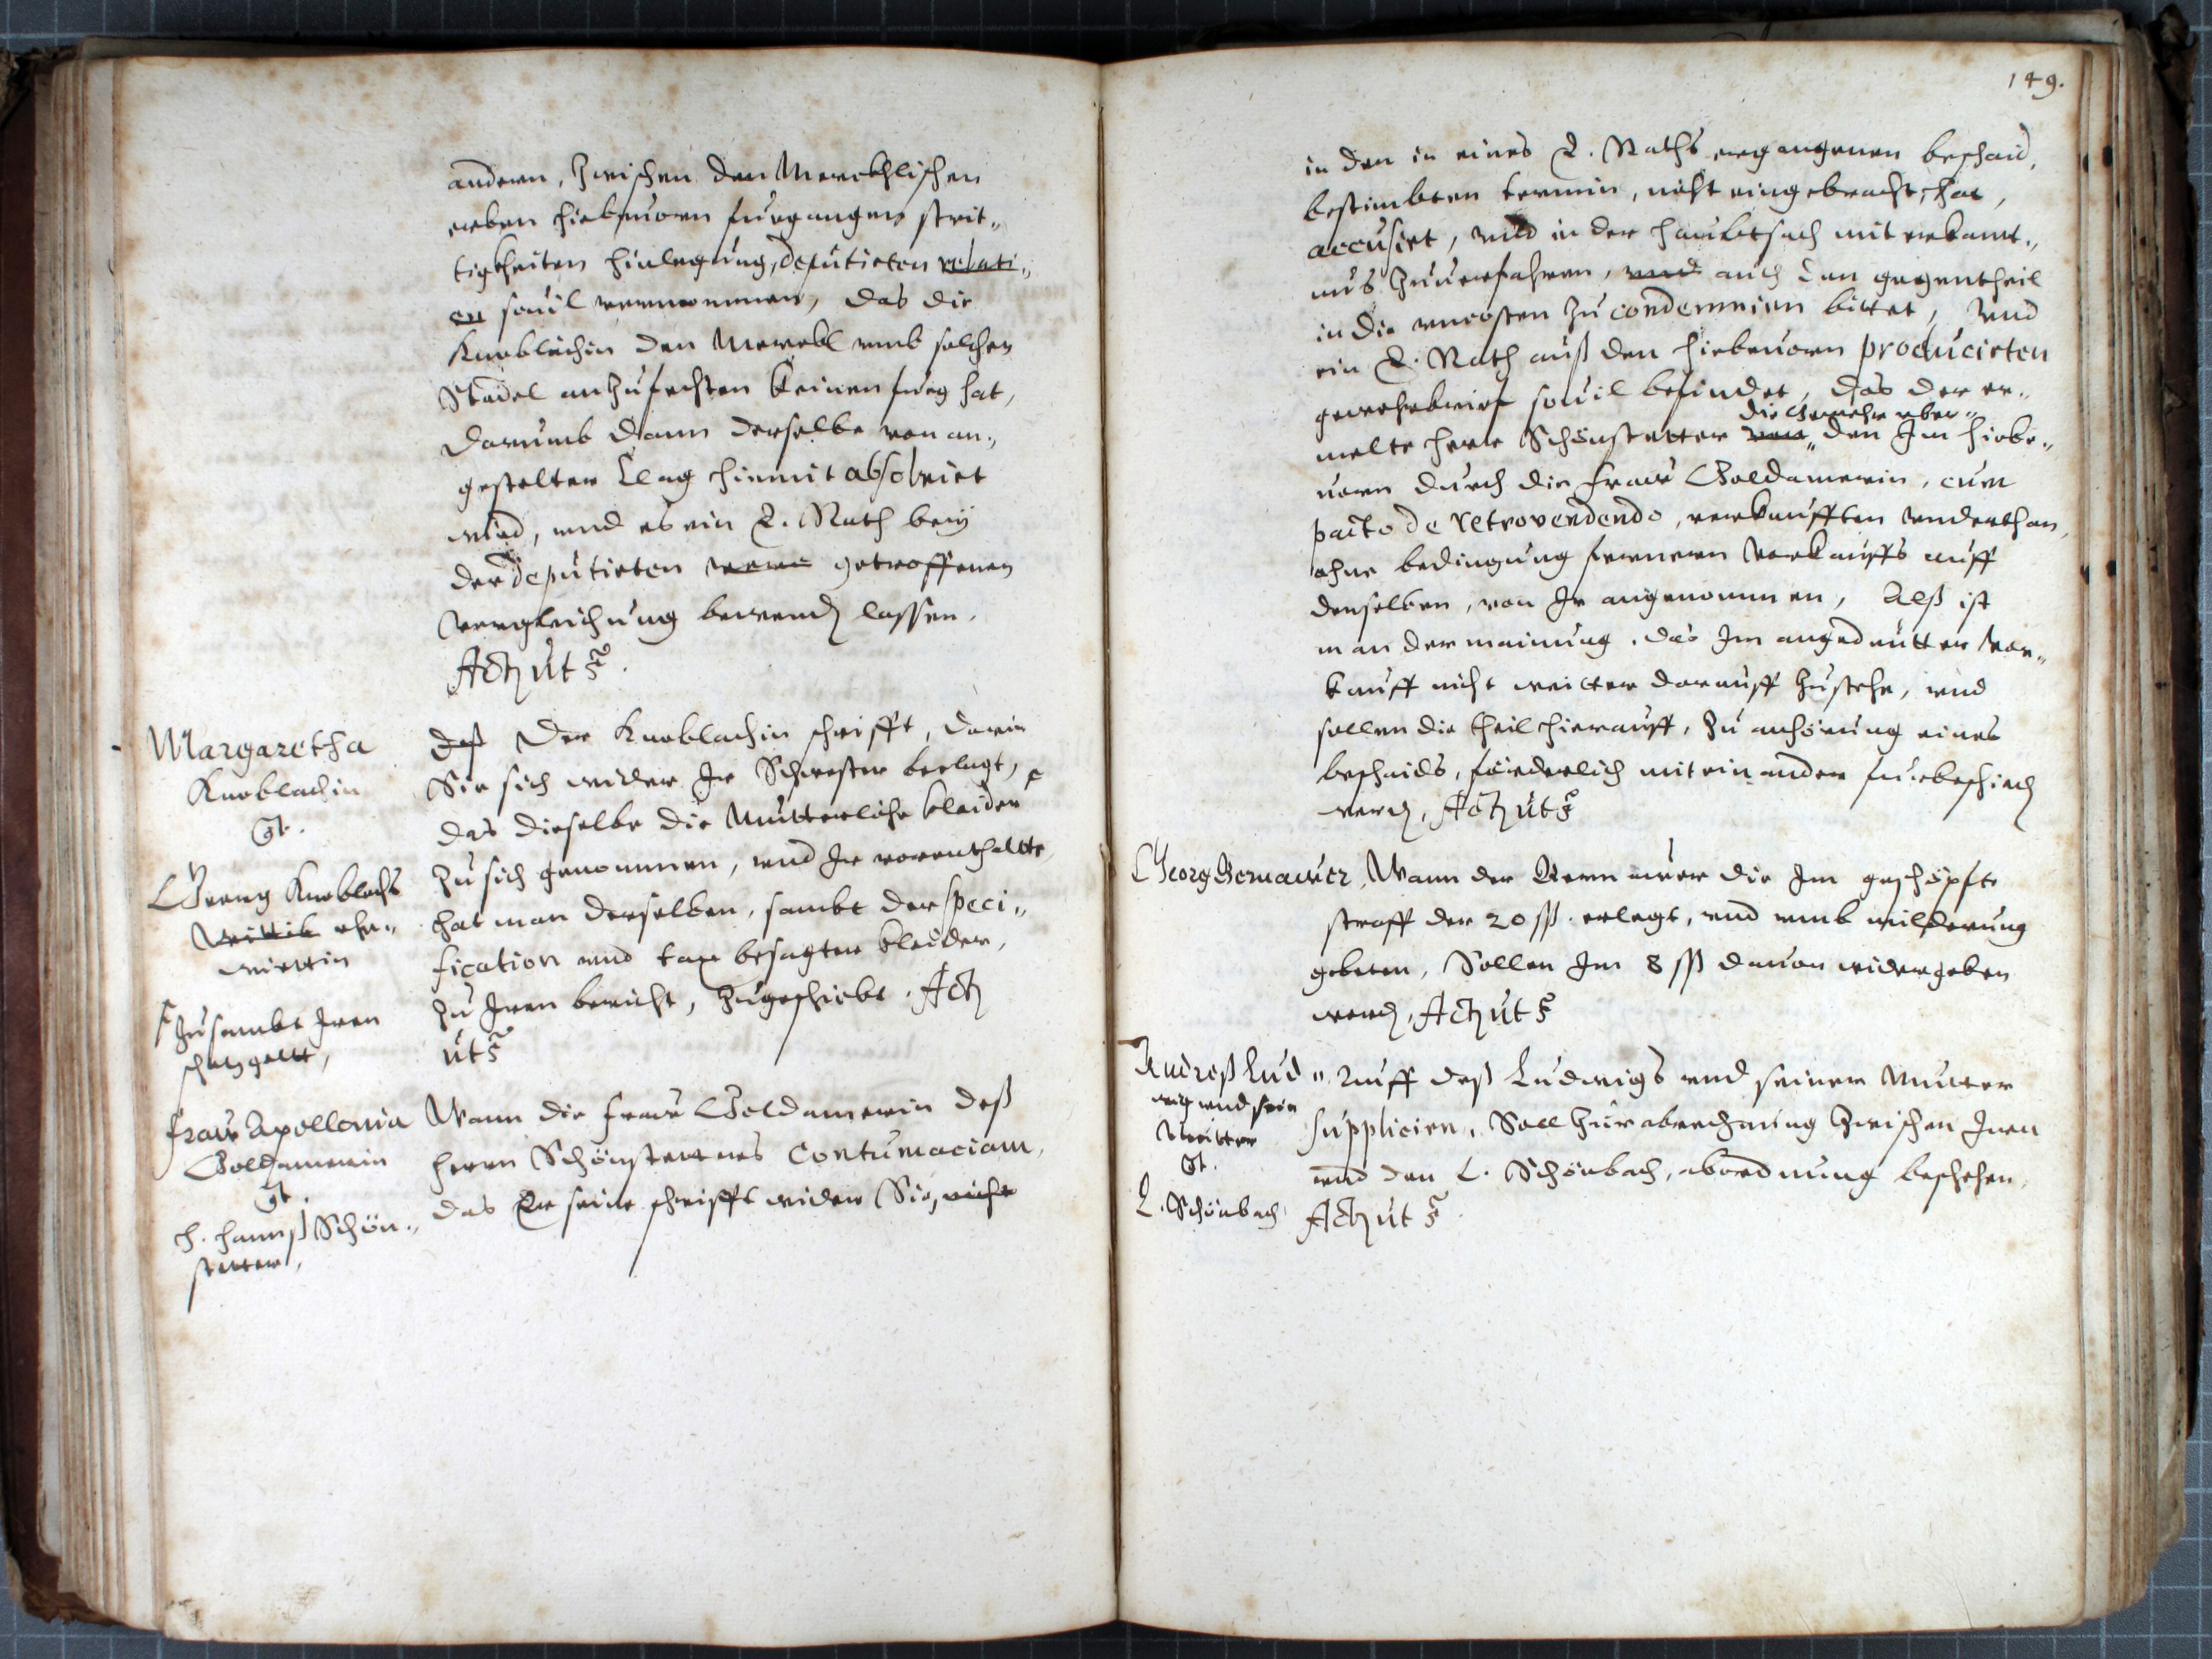 andern, zwischen den Merckhlischen
erben hiebeuorn furgangner strit„
tigkheiten hinlegung, deputierten relati„
on souil vernommen, das die
Knoblachin den Merckl vmb solchen
Stadel anzufechten keinen fueg hat,
darumb dann derselbe von an„
gestelter Clag hiemit absolviert
wird, vnd es ein E. Rath bey
der deputierten getroffenen
vergleichung bewend lassen.
Act ut s.
Margaretha
Knoblachin
Ct.
Georg Knoblachs
Wittib ehe„
wirttin
Der Knoblachin schrifft, darin
Sie sich wider Ir Schwester beclagt,
das dieselbe die Mutterliche kleider
zu sich genommen, vnd Ir vorenthallte,
hat man derselben, sambt der speci„
fication vnd tax besagter kleider,
zu Irem bericht, zugeschickt. Act
ut s
zusambt Irem
schatzgellt,
Fraw Apollonia
Goldamerin
Ct.
H. Hannß Schön„
stetter,
Wann die Fraw Goldamerin deß
Herrn Schönstetters Contumaciam,
das Er seine schrifft wider Sie, nicht
149.
in den in eines E. Raths ergangenen beschaid,
bestimbten termin, nicht eingebracht, hat,
accusirt, vnd in der haubtsach mit erkant„
nus zuuerfahren, vnd auch den gegentheil
in die vncosten zu condemnirn bittet, Vnd
ein E. Rath auß den hiebeuorn producirten
gewehrbrief souil befindet, das der er„
die Gewehr vber„
melte Herr Schönstetter von den Im hiebe„
uorn durch die Fraw Goldamerin, cum
pacto de retrovendendo, verkaufften vnderthan,
ohne bedingung fernern Vorkauffs auff
denselben, von Ir angenommen, Alß ist
man der mainung, das Im angedeutter Vor„
kauff nicht weitter darauff zustehe, vnd
sollen die theil hierauff, zu anhörung eines
beschaids, förderlich mit einander furbeschied
werd, Act ut s
Georg Bernawer, Wann der Bernawer die Im geschöpfte
straff der 20 ß. erlegt, vnd vmb milderung
gebeten, Sollen Im 8 ß dauon widergeben
werd, Act ut s
Andreß Lud„
wig vnd sein
Mutter
Ct.
L. Schönbach
Auff deß Ludwigs vnd seiner Mutter
supplicirn, Soll zur abrechnung zwischen Inen
vnd den L. Schönbach, abordnung beschehen,
Act ut s.